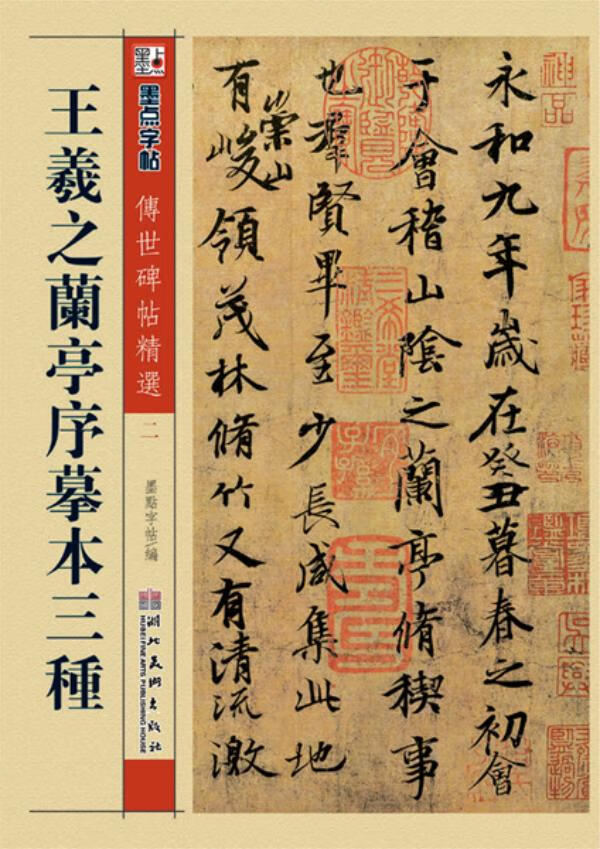 王羲之蘭亭序摹本三種
墨点
墨点字帖
傳世碑帖精選
二
墨點字帖/編
湖北美術出版社
HUBEI FINE ARTS PUBLISHING HOUSE
神品
永和九年歲在癸丑暮春之初會
于會稽山陰之蘭亭脩稧事
也群賢畢至少長咸集此地
有崇山峻領茂林脩竹又有清流激